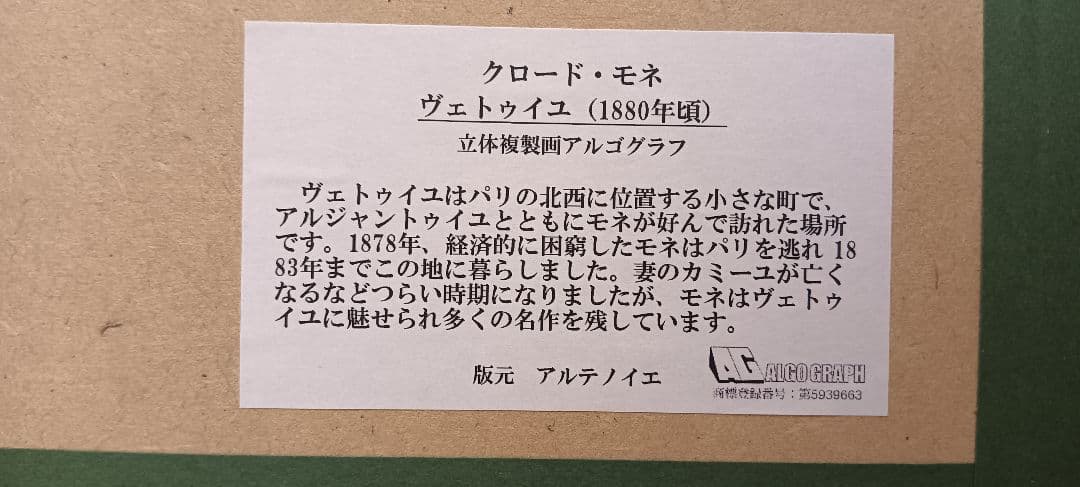 クロード・モネ
ヴェトゥイユ（1880年頃）
立体複製画アルゴグラフ
ヴェトゥイユはパリの北西に位置する小さな町で、
アルジャントゥイユとともにモネが好んで訪れた場所
です。1878年、経済的に困窮したモネはパリを逃れ 18
83年までこの地に暮らしました。妻のカミーユが亡く
なるなどつらい時期になりましたが、モネはヴェトゥ
イユに魅せられ多くの名作を残しています。
版元　アルテノイエ
AG ALGO GRAPH
商標登録番号：第5939663